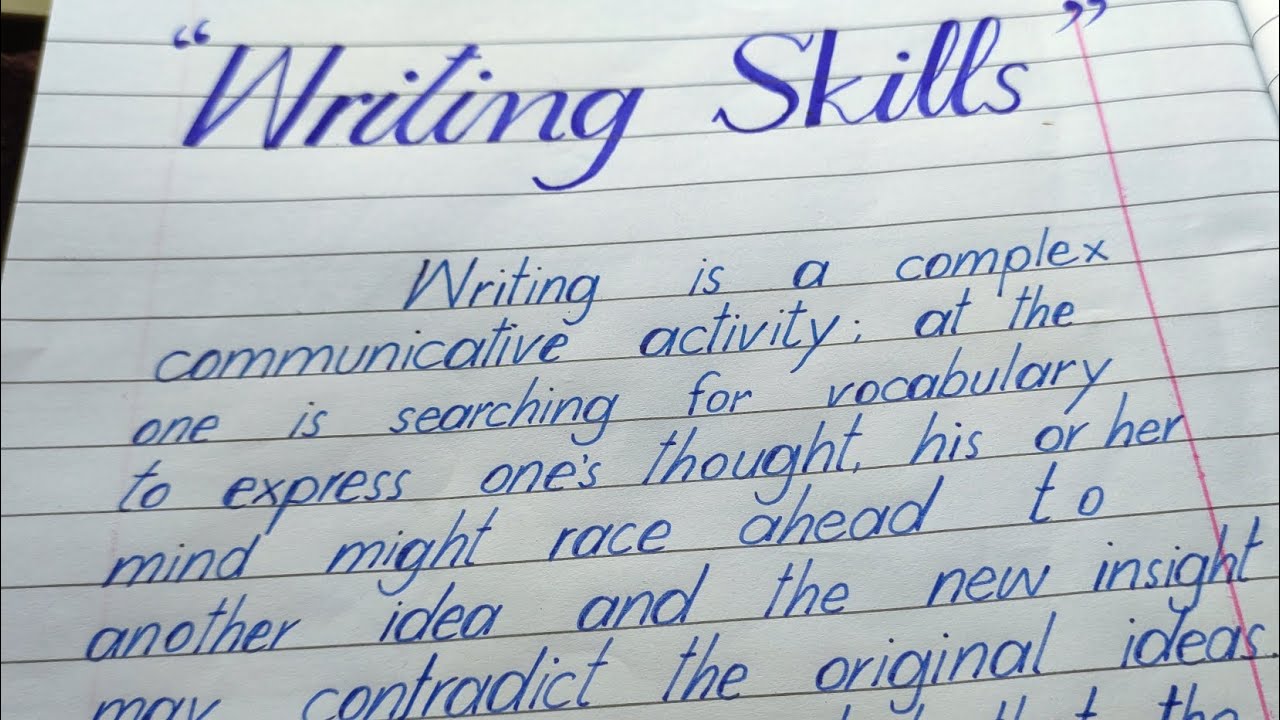 “Writing Skills”
Writing is a complex
communicative activity; at the
one is searching for vocabulary
to express one's thought, his or her
mind might race ahead to
another idea and the new insight
may contradict the original ideas.
the